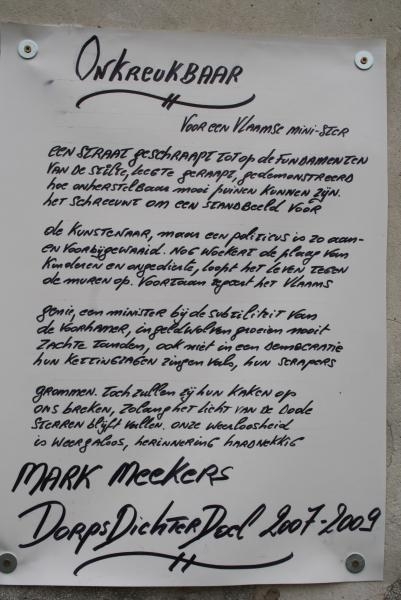 ONKREUKBAAR
VOOR EEN VLAAMSE MINI-STER
EEN STRAAT geschraapt tot op de FUNDAMENTEN
VAN DE STILTE, LEEGTE geraapt, gedemonstreerd
hoe onherstelbaar mooi puinen KUNNEN ZIJN.
HET SCHREEUWT OM EEN STANDBEELD VOOR
de KUNSTENAAR, maar een politicus is zo aan-
EN VOORBIJGEWAAID. NOG WOEKERT de plaag van
KINDEREN en ongedierte, loopt HET LEVEN TEGEN
de muren op. VOORTAAN HET VLAAMS
genie, een minister bij de subtiliteit van
de VOORHAMER, in geldwolven groeien nooit
ZACHTE TANDEN, OOK NIET in een DEMOCRATIE
HUN KETTINGZAGEN zingen vals, hun SCRAPERS
grommen. Toch zullen zij hun KAKEN op
ONS breken, zolang het licht VAN de DODE
STERREN blijft vallen. ONZE weerloosheid
is WEERGALOOS, HERINNERING HARDNEKKIG
MARK MEEKERS
DORPSDICHTER DOEL 2007-2009